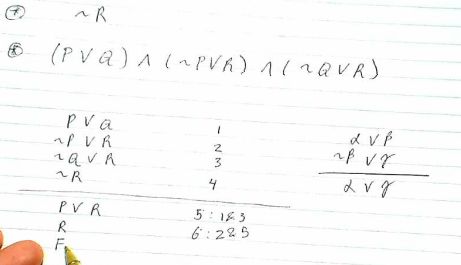 ⑦ ~R
⑧ (P∨Q) ∧ (~P∨R) ∧ (~Q∨R)
P∨Q 1
~P∨R 2
~Q∨R 3
~R 4
P∨R 5: 1&3
R 6: 2&5
F
α∨β
~β∨γ
α∨γ